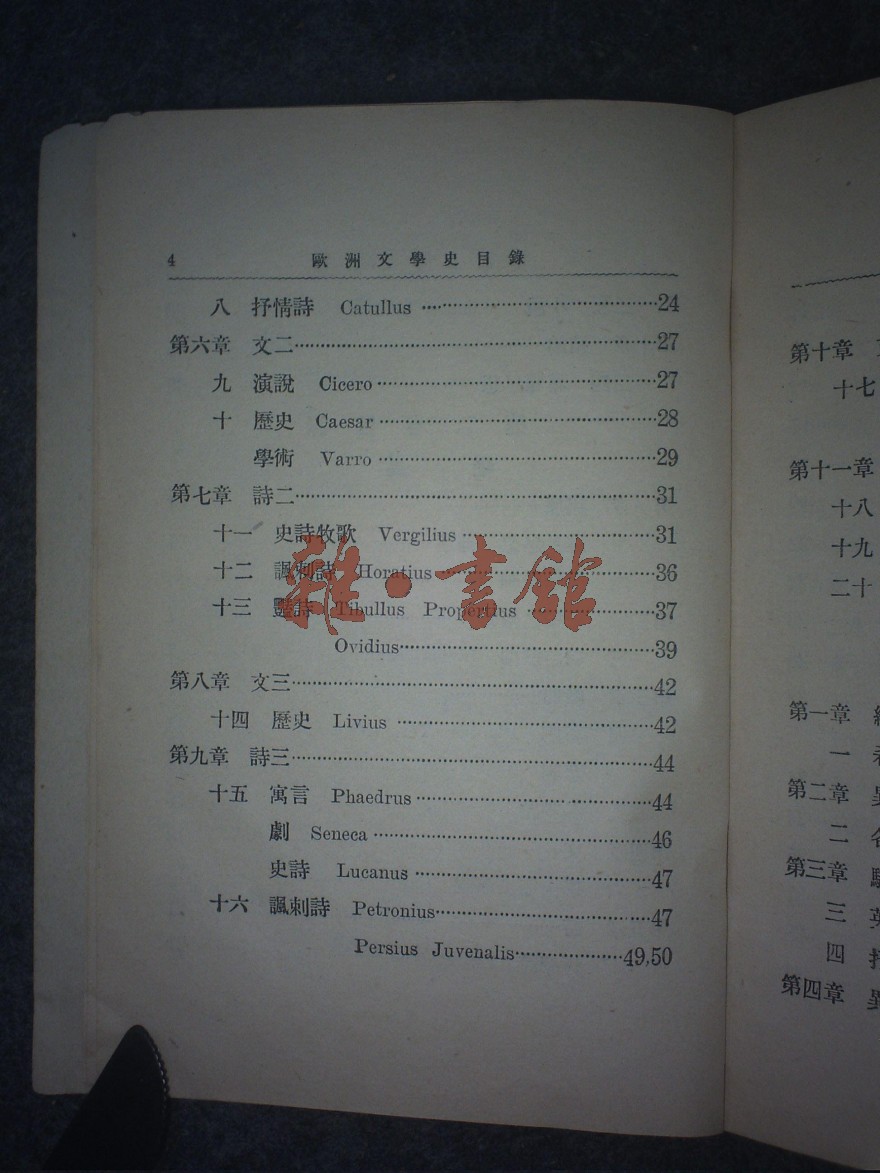 4 歐洲文學史目錄
八 抒情詩 Catullus ................24
第六章 文二................27
九 演說 Cicero................27
十 歷史 Caesar................28
學術 Varro................29
第七章 詩二................31
十一 史詩牧歌 Vergilius................31
十二 諷刺詩 Horatius................36
十三 豔詩 Tibullus Propertius................37
Ovidius................39
第八章 文三................42
十四 歷史 Livius................42
第九章 詩三................44
十五 寓言 Phaedrus................44
劇 Seneca................46
史詩 Lucanus................47
十六 諷刺詩 Petronius................47
Persius Juvenalis................49,50
雜·書館
第十章
十七
第十一章
十八
十九
二十
第一章
一
第二章
二
第三章
三
四
第四章